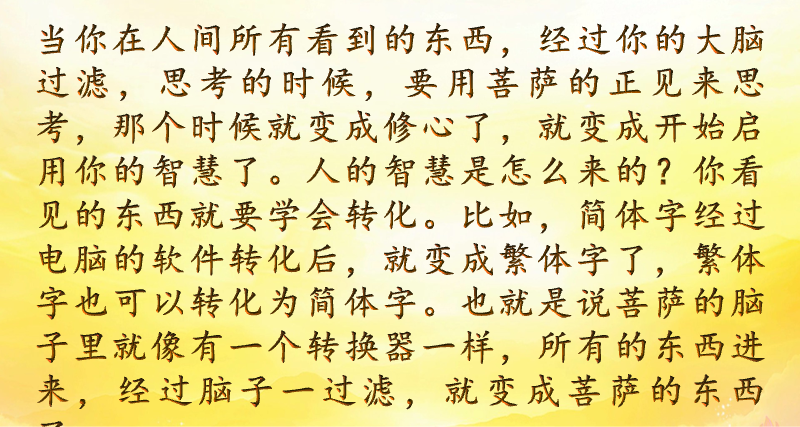 当你在人间所有看到的东西，经过你的大脑
过滤，思考的时候，要用菩萨的正见来思
考，那个时候就变成修心了，就变成开始启
用你的智慧了。人的智慧是怎么来的？你看
见的东西就要学会转化。比如，简体字经过
电脑的软件转化后，就变成繁体字了，繁体
字也可以转化为简体字。也就是说菩萨的脑
子里就像有一个转换器一样，所有的东西进
来，经过脑子一过滤，就变成菩萨的东西